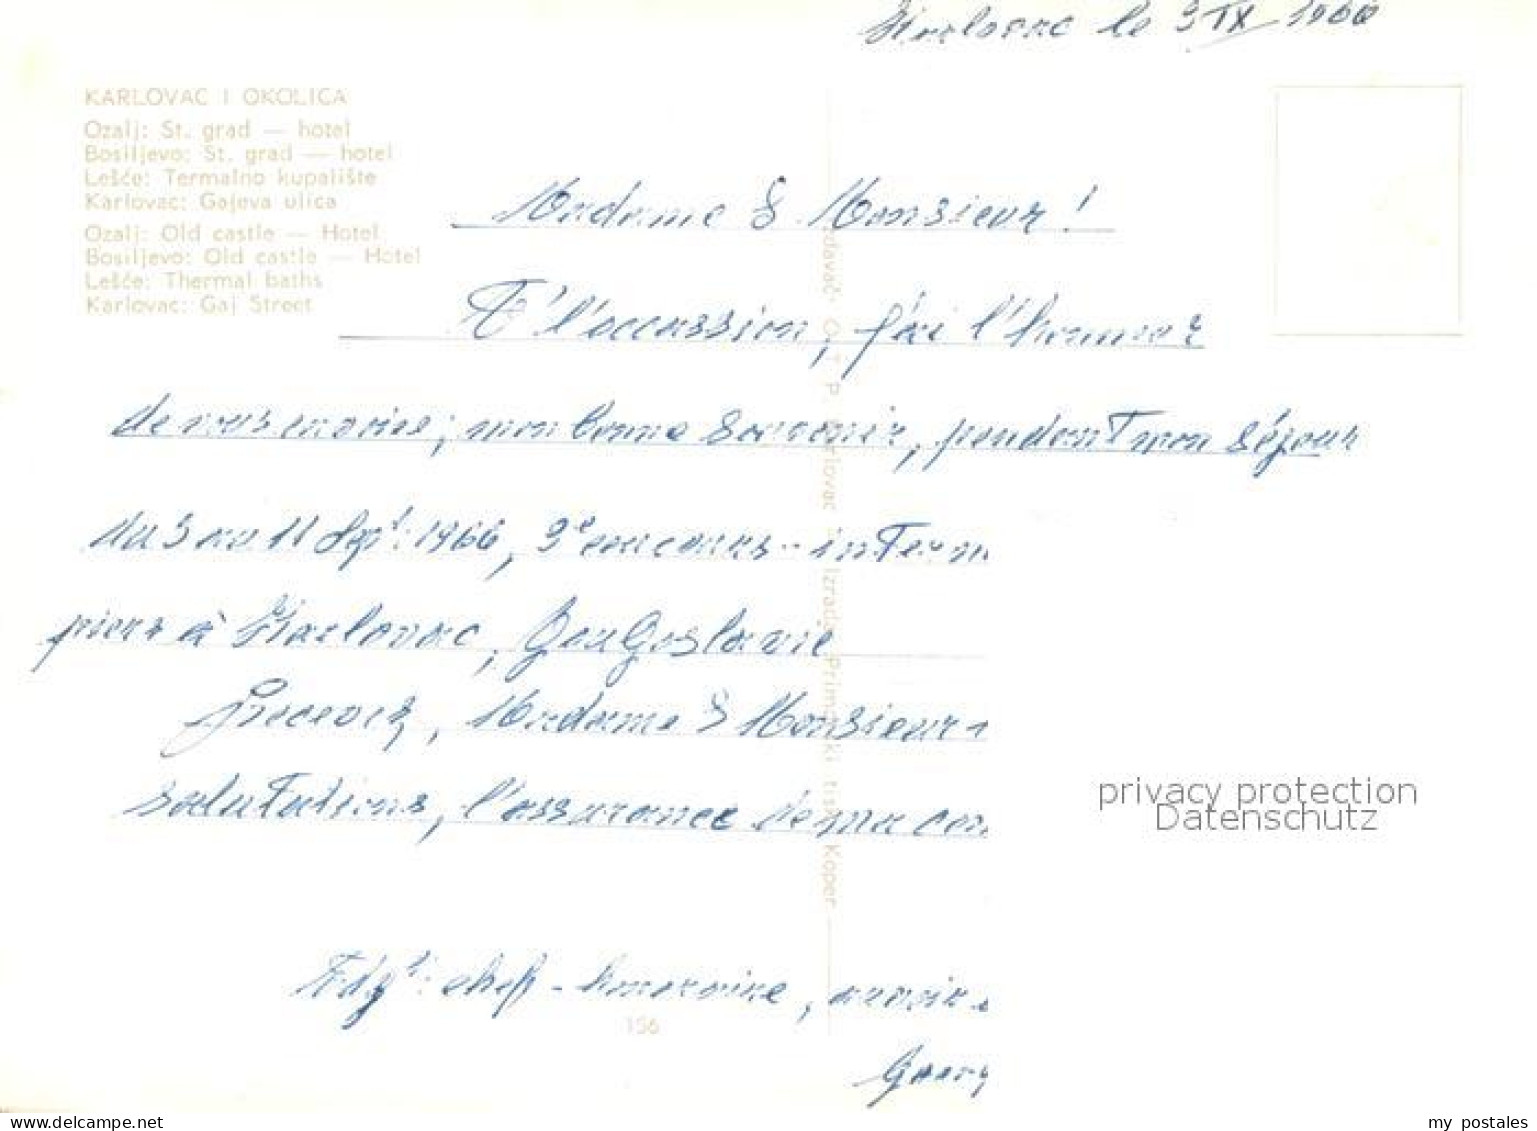 Karlovac le 3 IX 1966
KARLOVAC I OKOLICA
Ozalj: St. grad — hotel
Bosiljevo: St. grad — hotel
Lešće: Termalno kupalište
Karlovac: Gajeva ulica
Ozalj: Old castle — Hotel
Bosiljevo: Old castle — Hotel
Lešće: Thermal baths
Karlovac: Gaj Street
Madame & Monsieur!
A' l'occassion, j'ai l'honneur
de vous envoire, mon bonne souvenir, pendant mon séjour
du 3 au 11 Sept: 1966, 3e concours - intern
piers à Karlovac, Yougoslavie
Recevez, Madame & Monsieur
salutations, l'assurance de ma con
Adjt: chef - honoraire,
Georg
Izdavač: O. T. P. Karlovac Izrada: Primorski tisk Koper
156
privacy protection
Datenschutz
www.delcampe.net
my postales